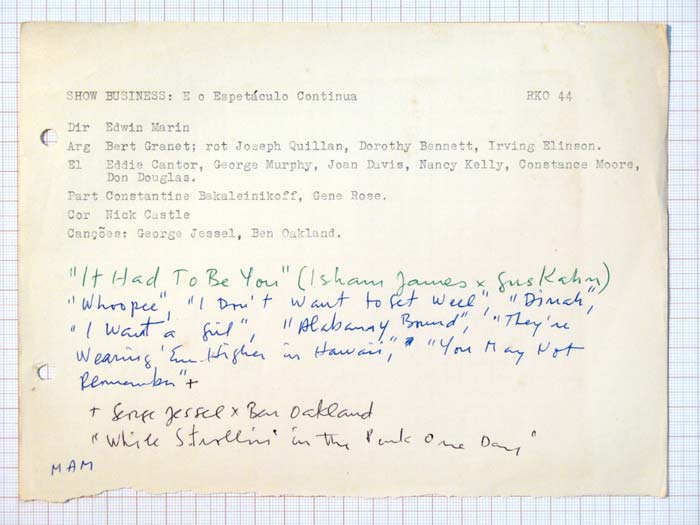 SHOW BUSINESS: E o Espetáculo Continua RKO 44
Dir Edwin Marin
Arg Bert Granet; rot Joseph Quillan, Dorothy Bennett, Irving Elinson.
El Eddie Cantor, George Murphy, Joan Davis, Nancy Kelly, Constance Moore,
Don Douglas.
Part Constantine Bakaleinikoff, Gene Rose.
Cor Nick Castle
Canções: George Jessel, Ben Oakland.
"It Had To Be You" (Isham James x Gus Kahn)
"Whoopee", "I Don't Want to Get Well", "Dinah",
"I Want a Girl", "Alabamy Bound", "They're
Wearing 'Em Higher in Hawaii", "You May Not
Remember" +
+ George Jessel x Ben Oakland
"While Strollin' in the Park One Day"
MAM